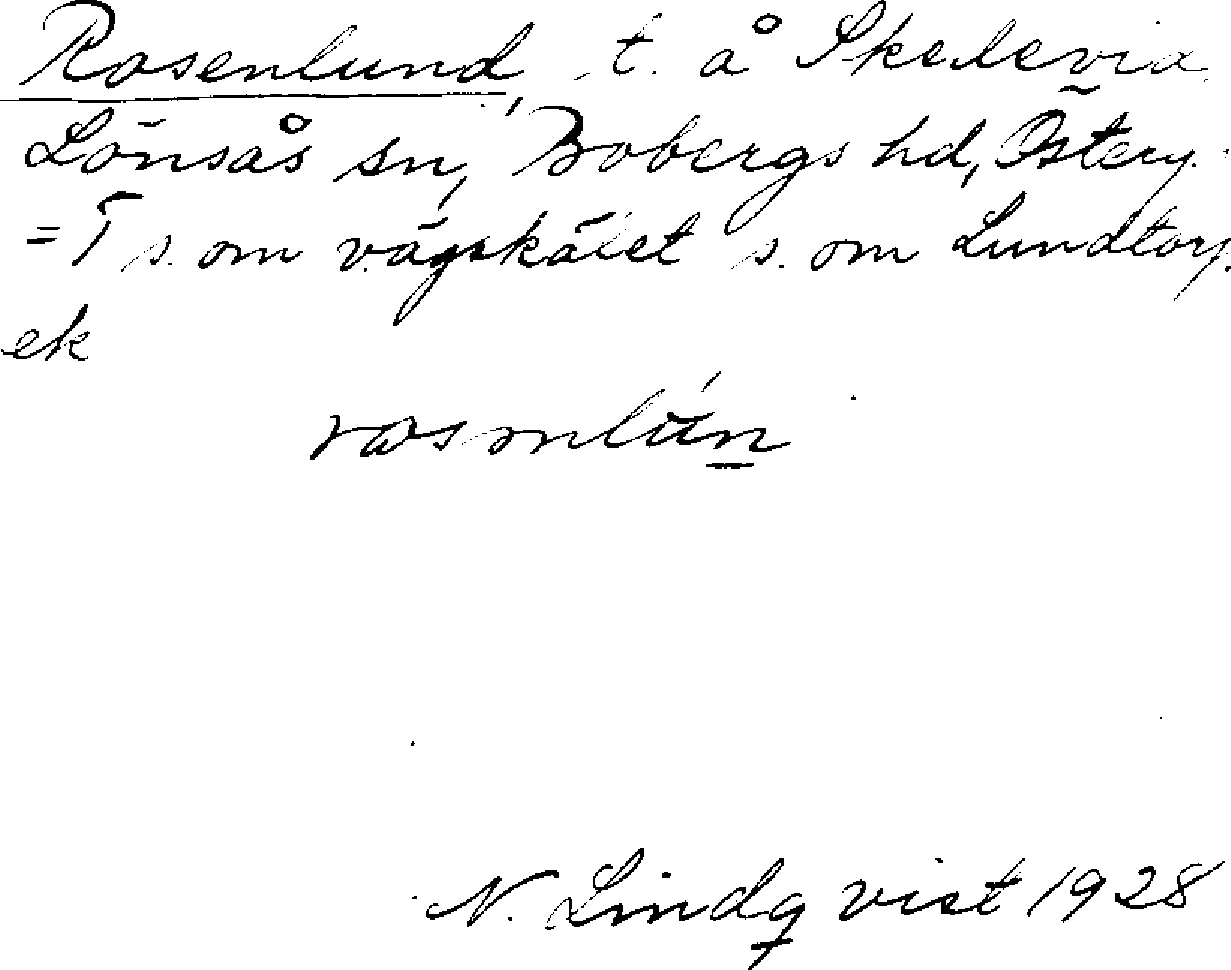 Rosenlund, t. å Skedevia
Lönsås sn, Bobergs hd, Österg.
= T s. om vägskälet s. om Lundtorp.
ek
N. Lindqvist 1928